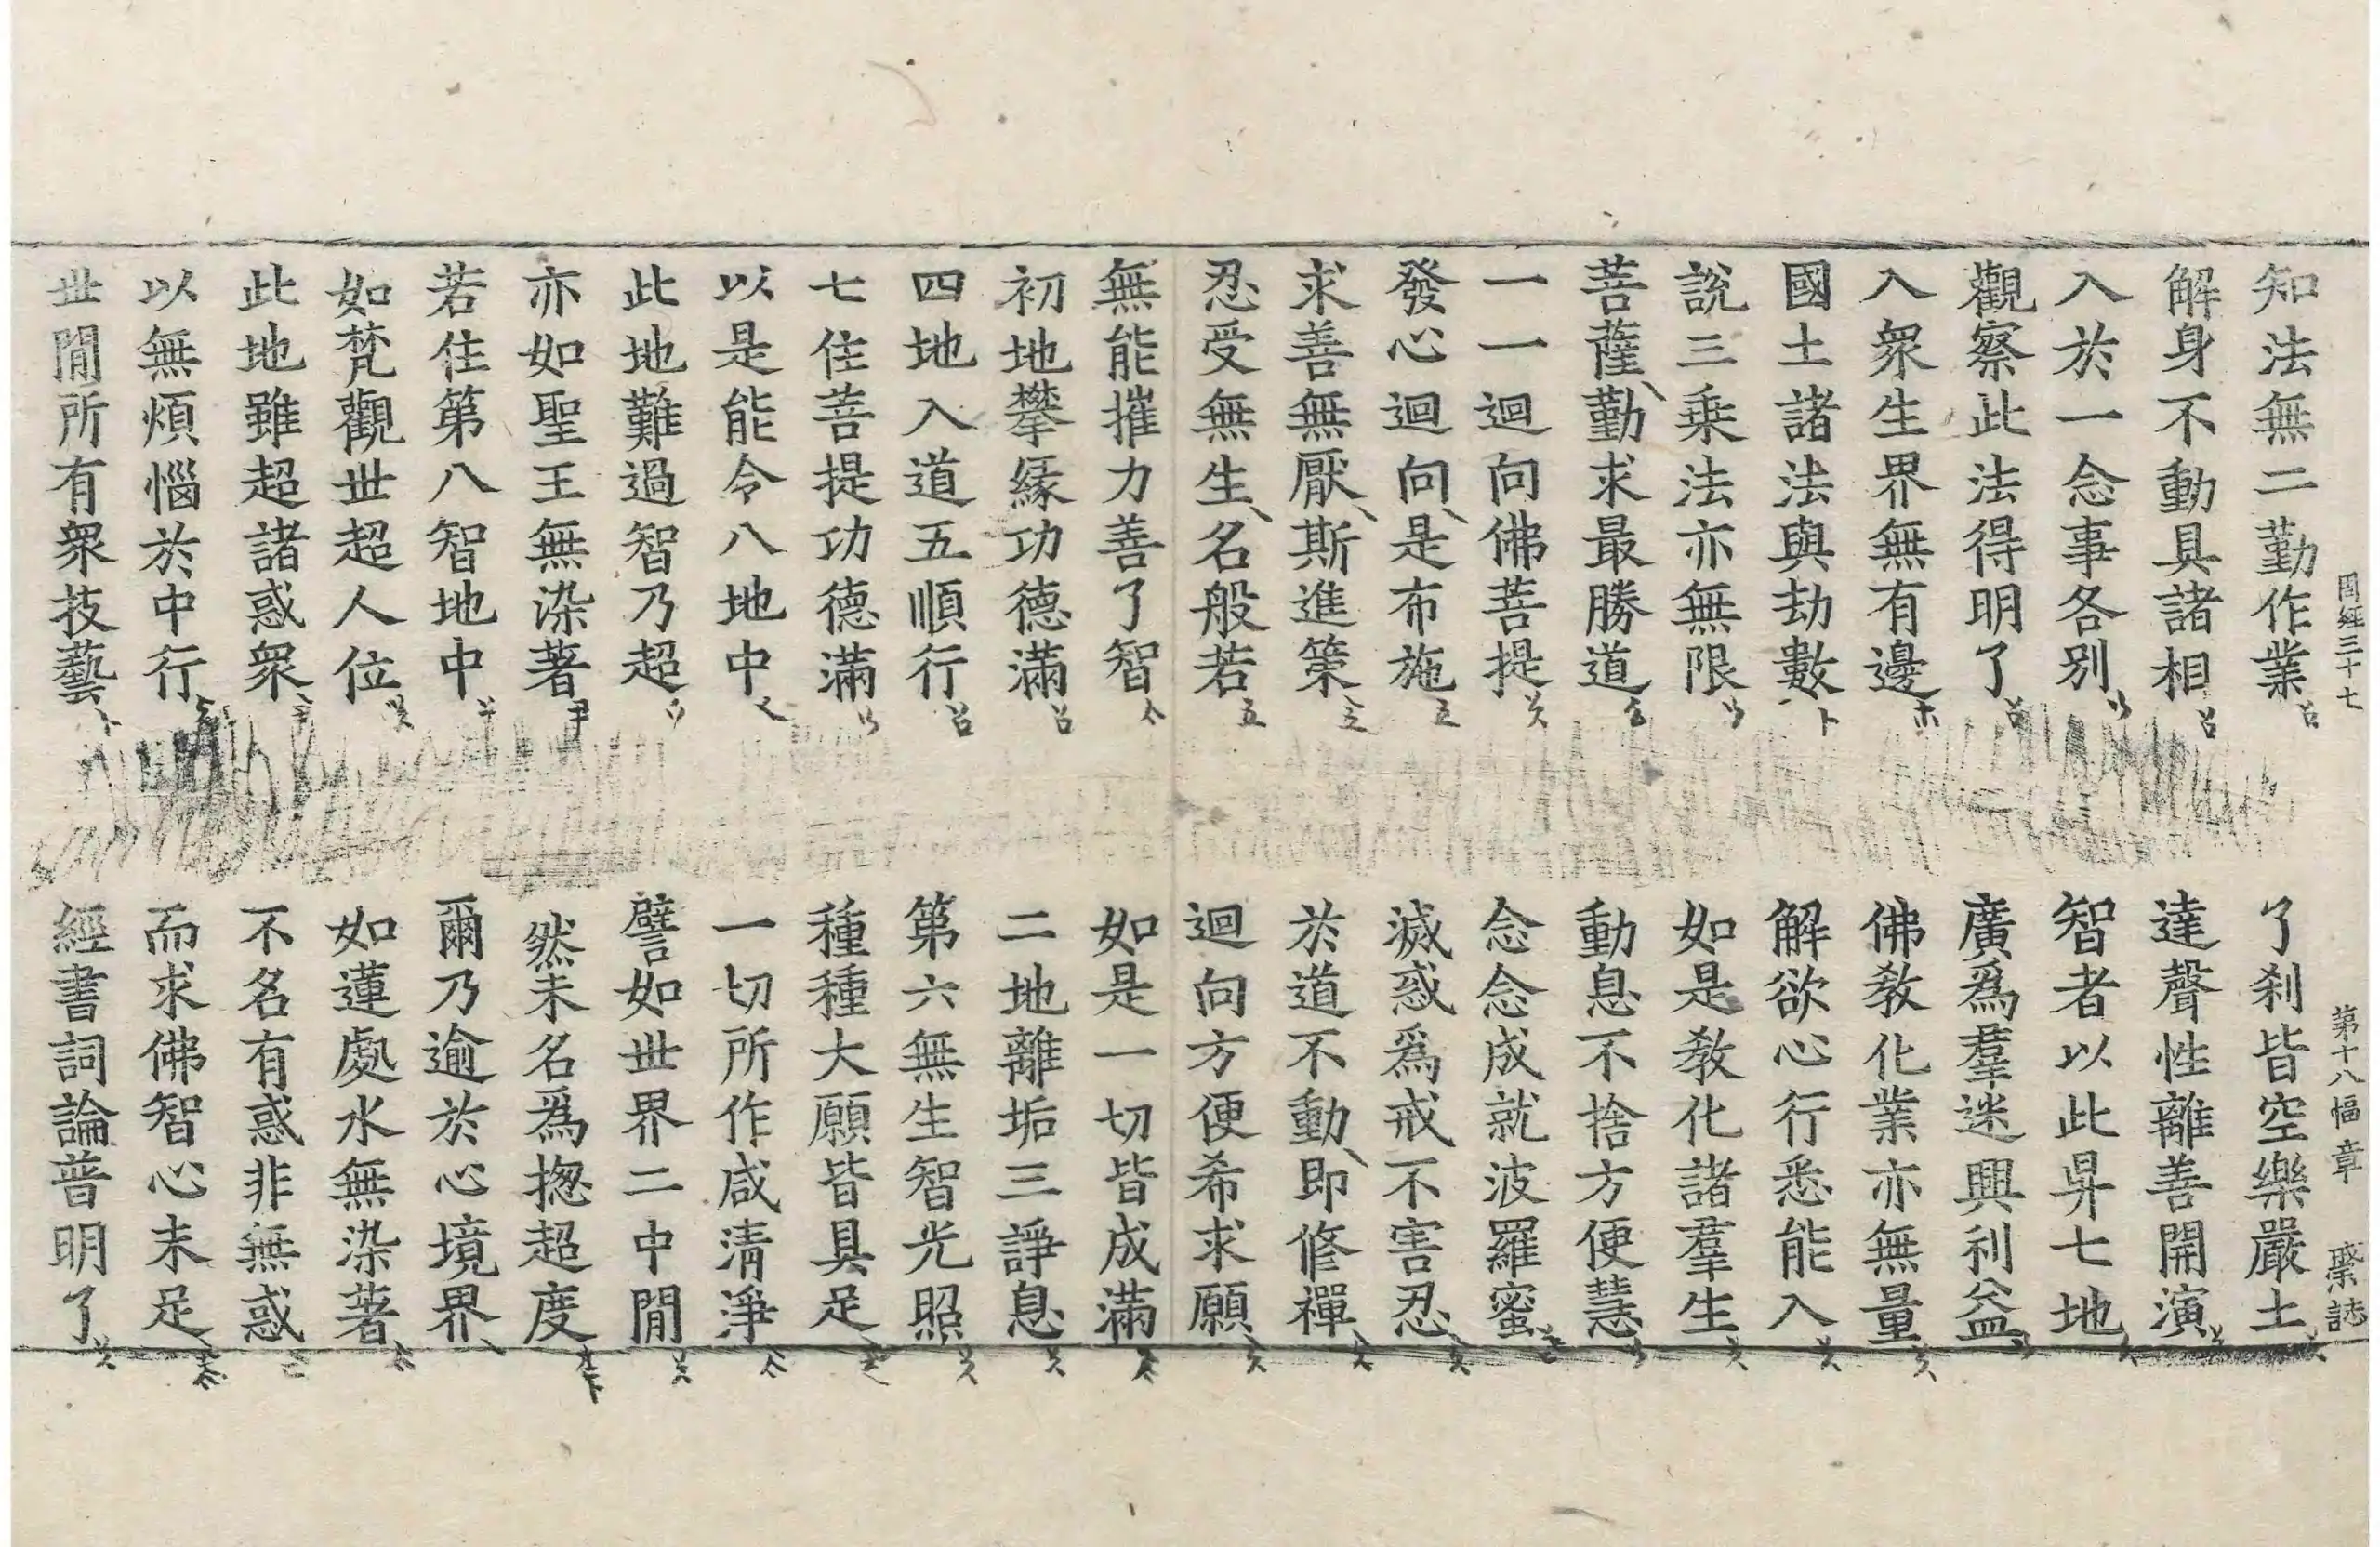 周經三十七　第十八幅　章
知法無二勤作業　了刹皆空樂嚴土
解身不動具諸相　達聲性離善開演
入於一念事各別　智者以此昇七地
觀察此法得明了　廣爲羣迷興利益
入衆生界無有邊　佛教化業亦無量
國土諸法與劫數　解欲心行悉能入
說三乗法亦無限　如是教化諸羣生
菩薩勤求最勝道　動息不捨方便慧
一一迴向佛菩提　念念成就波羅蜜
發心迴向是布施　滅惑爲戒不害忍
求善無厭斯進策　於道不動即修禪
忍受無生名般若　迴向方便希求願
無能摧力善了智　如是一切皆成滿
初地攀緣功德滿　二地離垢三諍息
四地入道五順行　第六無生智光照
七住菩提功德滿　種種大願皆具足
以是能令八地中　一切所作咸清淨
此地難過智乃超　譬如世界二中閒
亦如聖王無染著　然未名爲揔超度
若住第八智地中　爾乃逾於心境界
如梵觀世超人位　如蓮處水無染著
此地雖超諸惑衆　不名有惑非無惑
以無煩惱於中行　而求佛智心未足
世閒所有衆技藝　經書詞論普明了